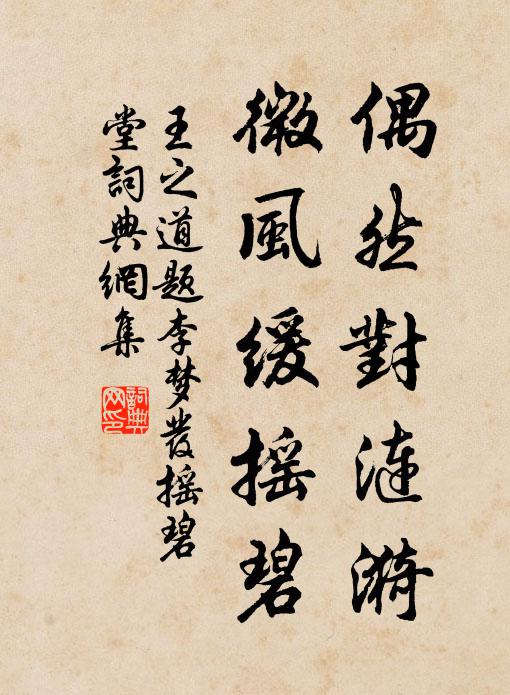 偶然對漣漪
微風緩搖碧
王之道题李梦發摇碧
堂詞典網集
詞典網印